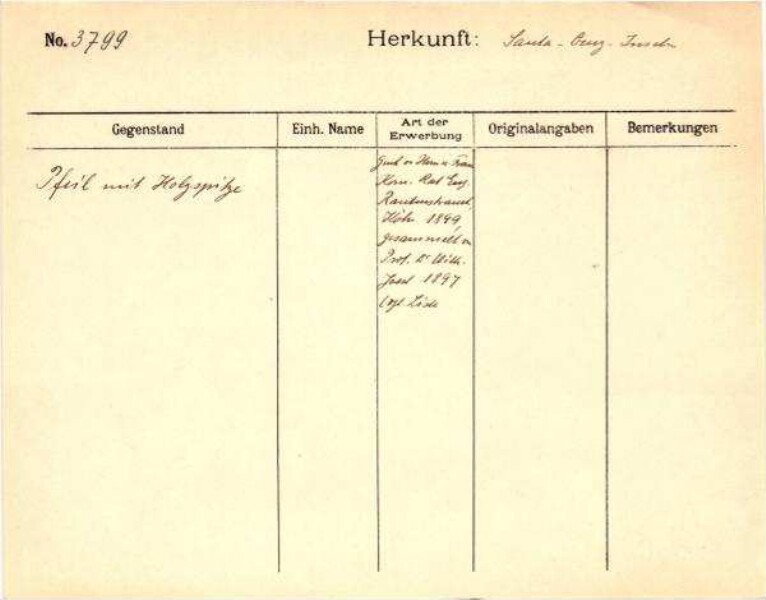 No. 3799 Herkunft: Santa-Cruz-Inseln
Gegenstand Einh. Name Art der Erwerbung Originalangaben Bemerkungen
Pfeil mit Holzspitze
Gesch. v. Herrn u. Frau
Kom. Rat Eug.
Rautenstrauch,
Köln 1899,
gesammelt v.
Prof. Dr Wilh.
Joest 1897